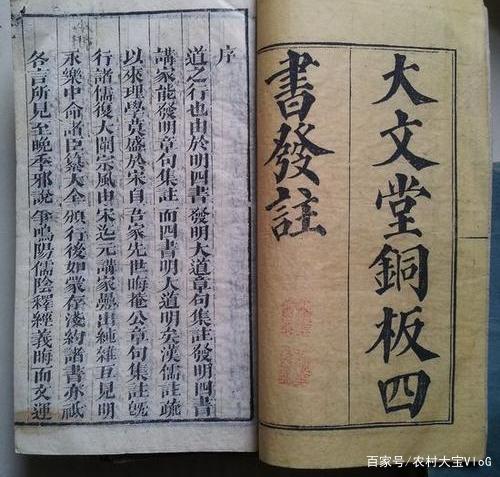 大文堂銅板四
書發註
序
道之行也由於明四書發明大道章句集註發明四書
講家能發明章句集註而四書明大道明矣漢儒註疏
以來理學莫盛於宋自吾家先世晦掩公章句集註既
行諸儒復大闡宗風由宋迄元講家疊出純雜互見明
永樂中命諸臣纂大全頒行後如蒙存淺約諸書亦祗
各言所見至晚季邪說爭鳴陽儒陰釋經義晦而文運
百家号/农村大宝VloG